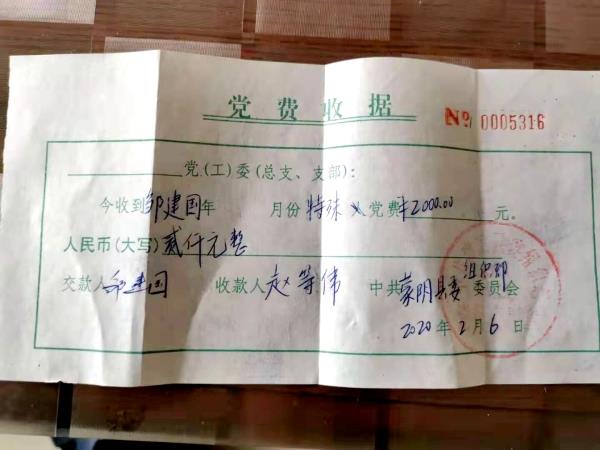 党费收据
№ 0005316
党(工)委(总支、支部):
今收到邹建国年 月份特殊党费¥2000.00元。
人民币(大写)贰仟元整
交款人邹建国 收款人赵等伟 中共蒙阴县委组织部委员会
2020年2月6日